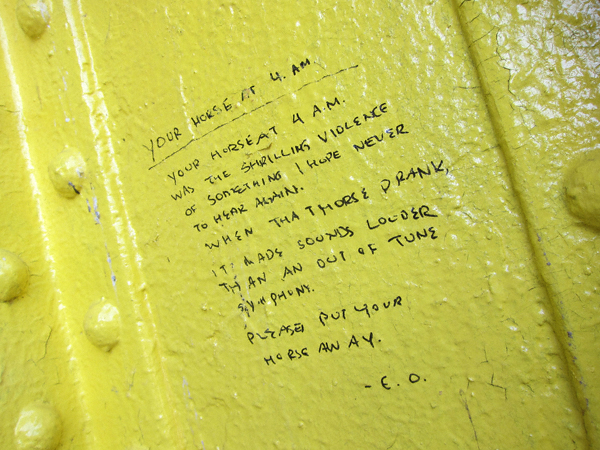 YOUR HORSE AT 4. AM.
YOUR HORSE AT 4 A.M.
WAS THE SHRILLING VIOLENCE
OF SOMETHING I HOPE NEVER
TO HEAR AGAIN.
WHEN THAT HORSE DRANK,
IT MADE SOUNDS LOUDER
THAN AN OUT OF TUNE
SYMPHONY.
PLEASE PUT YOUR
HORSE AWAY.
- E. O.